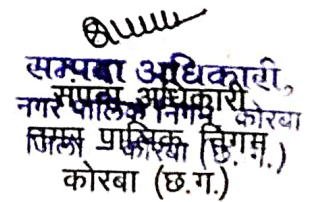 सम्पदा अधिकारी,
संपदा अधिकारी
नगर पालिक निगम कोरबा
नगर पालिक निगम
जिला कोरबा (छ.ग.)
कोरबा (छ.ग.)